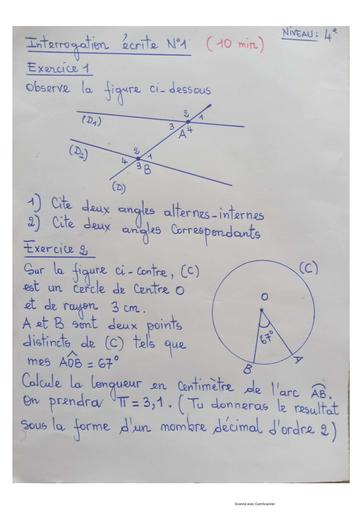 Interrogation écrite N°1 (10 min)
NIVEAU: 4e
Exercice 1
Observe la figure ci-dessous
(D1)
2
1
3
A
4
(D2)
2
1
4
3
B
(D)
1) Cite deux angles alternes-internes
2) Cite deux angles Correspondants
Exercice 2
Sur la figure ci-contre, (C)
est un cercle de centre O
et de rayon 3 cm.
A et B sont deux points
distincts de (C) tels que
mes AÔB = 67°
(C)
O
67°
B
A
Calcule la longueur en centimètre de l'arc AB.
On prendra π = 3,1. (Tu donneras le resultat
sous la forme d'un nombre décimal d'ordre 2)
Scanné avec CamScanner